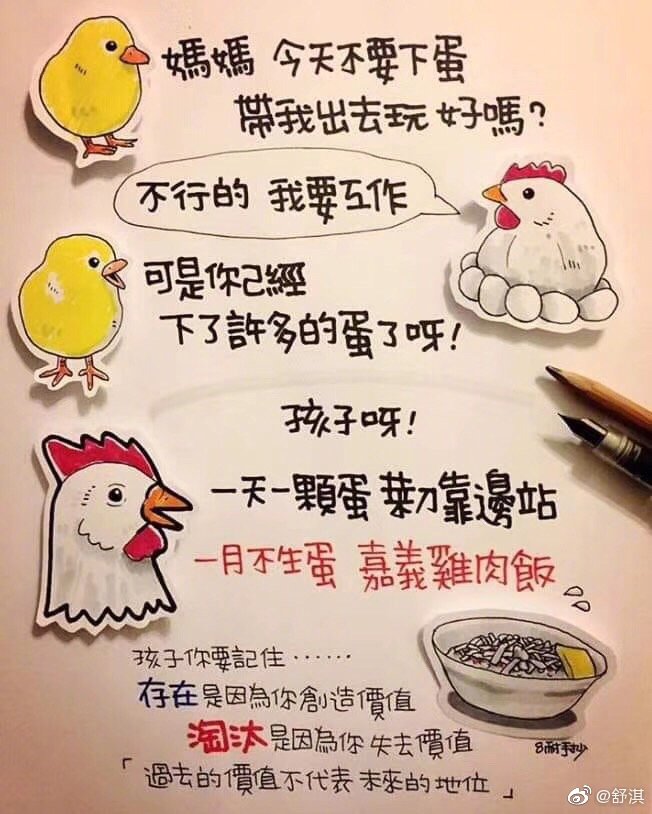 媽媽 今天不要下蛋
帶我出去玩 好嗎?
不行的 我要工作
可是你己經
下了許多的蛋了呀!
孩子呀!
一天一顆蛋 菜刀靠邊站
一月不生蛋 嘉義雞肉飯
孩子你要記住……
存在是因為你創造價值
淘汰是因為你失去價值
「過去的價值不代表未來的地位」
8耐手抄
@舒淇